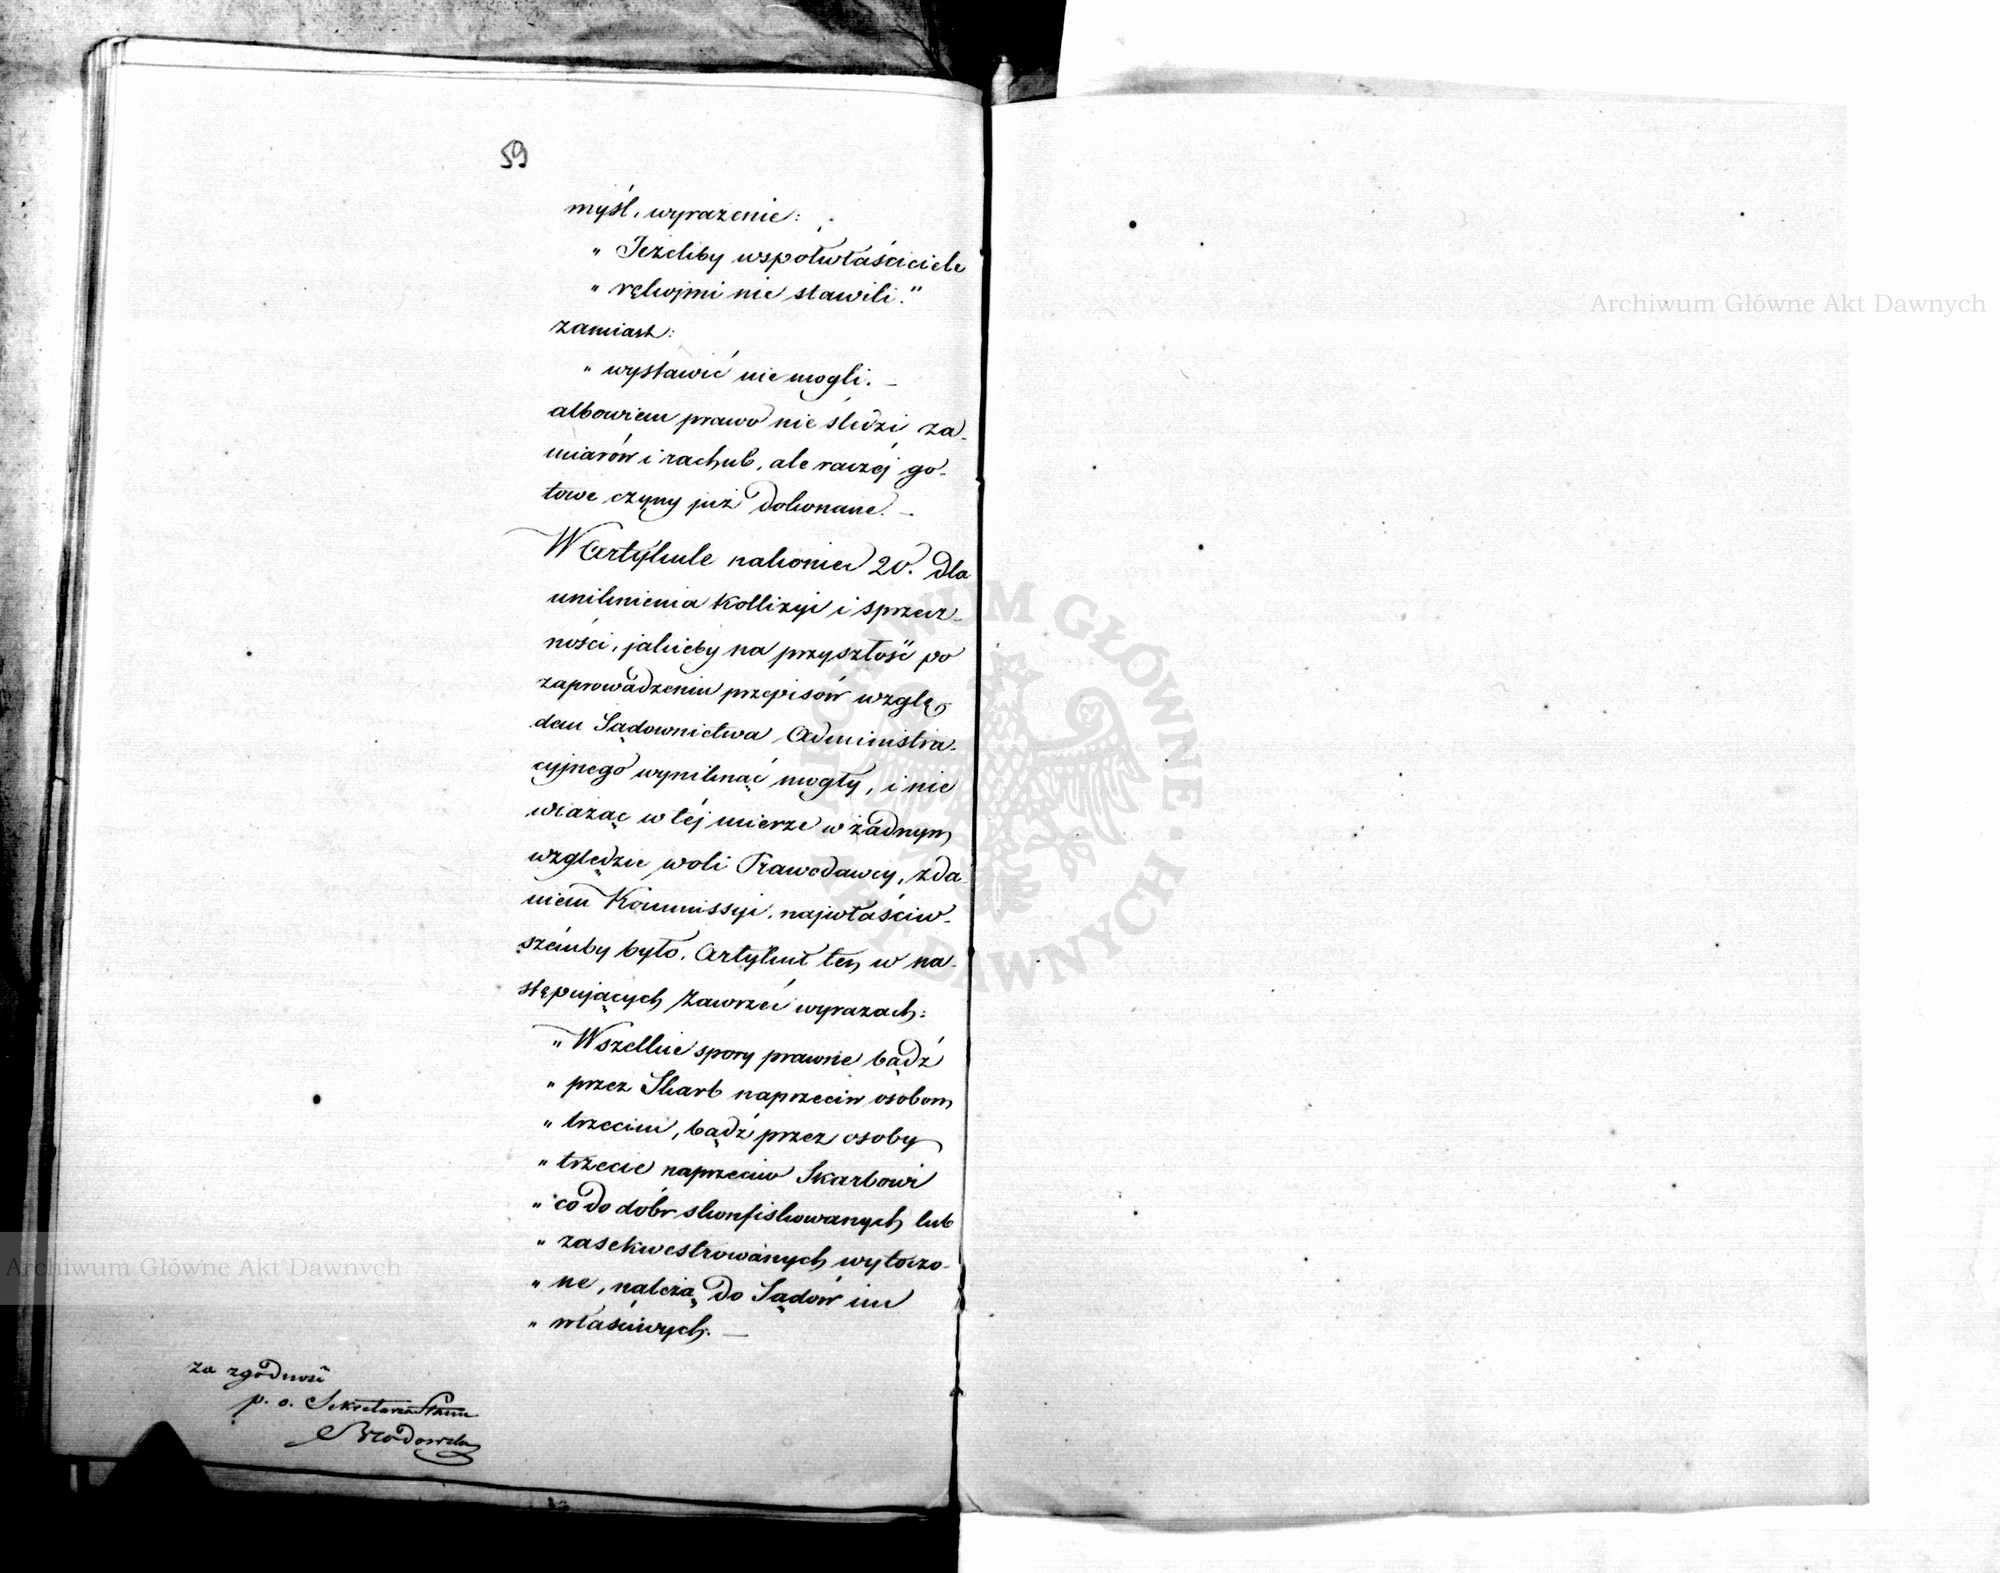 59
myśl, wyrażenie:
„ Jeżeliby współwłaściciele
„ rękojmi nie stawili."
zamiast:
„ wystawić nie mogli. —
albowiem prawo nie śledzi za-
miarów i rachub, ale raczéj go-
towe czyny już dokonane. —
W Artykule nakoniec 20. dla
uniknienia kollizyi i sprzecz-
ności, jakieby na przyszłość po
zaprowadzeniu przepisów wzglę-
dem Sądownictwa Administra-
cyjnego wyniknąć mogły, i nie
wiążąc w téj mierze w żadnym
względzie woli Prawodawcy, zda-
niem Kommissyi, najwłaściw-
szémby było, Artykuł ten w na-
stępujących zawrzeć wyrazach:
„ Wszelkie spory prawne bądź
„ przez Skarb naprzeciw osobom
„ trzecim, bądź przez osoby
„ trzecie naprzeciw Skarbowi
„ co do dóbr skonfiskowanych lub
„ zasekwestrowanych wytoczo-
„ ne, należą do Sądów im
„ właściwych. —
za zgodność
p. o. Sekretarza Stanu
Archiwum Główne Akt Dawnych
Archiwum Główne Akt Dawnych
ARCHIWUM GŁÓWNE AKT DAWNYCH